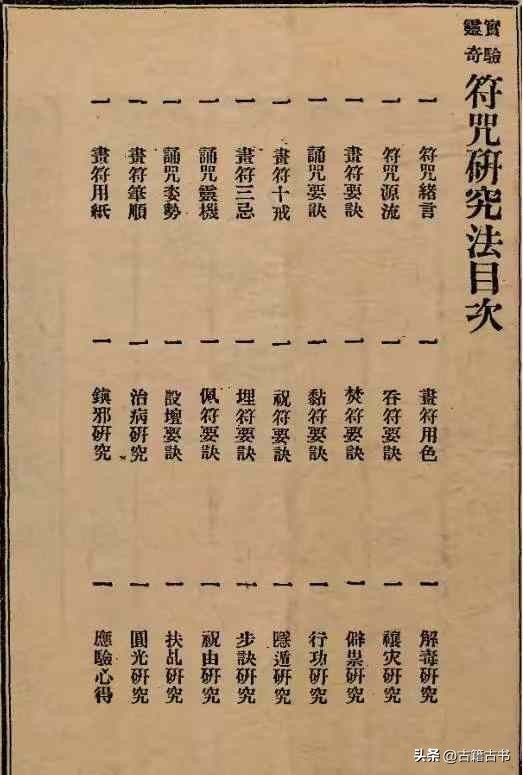 實驗靈奇
符咒研究法目次
一 符咒緒言
一 符咒源流
一 畫符要訣
一 誦咒要訣
一 畫符十戒
一 畫符三忌
一 誦咒靈機
一 誦咒姿勢
一 畫符筆順
一 畫符用紙
一 畫符用色
一 吞符要訣
一 焚符要訣
一 黏符要訣
一 祝符要訣
一 埋符要訣
一 佩符要訣
一 設壇要訣
一 治病研究
一 鎮邪研究
一 解毒研究
一 禳灾研究
一 僻祟研究
一 行功研究
一 隱遁研究
一 步訣研究
一 祝由研究
一 扶乩研究
一 圓光研究
一 應驗心得
头条 @古籍古书